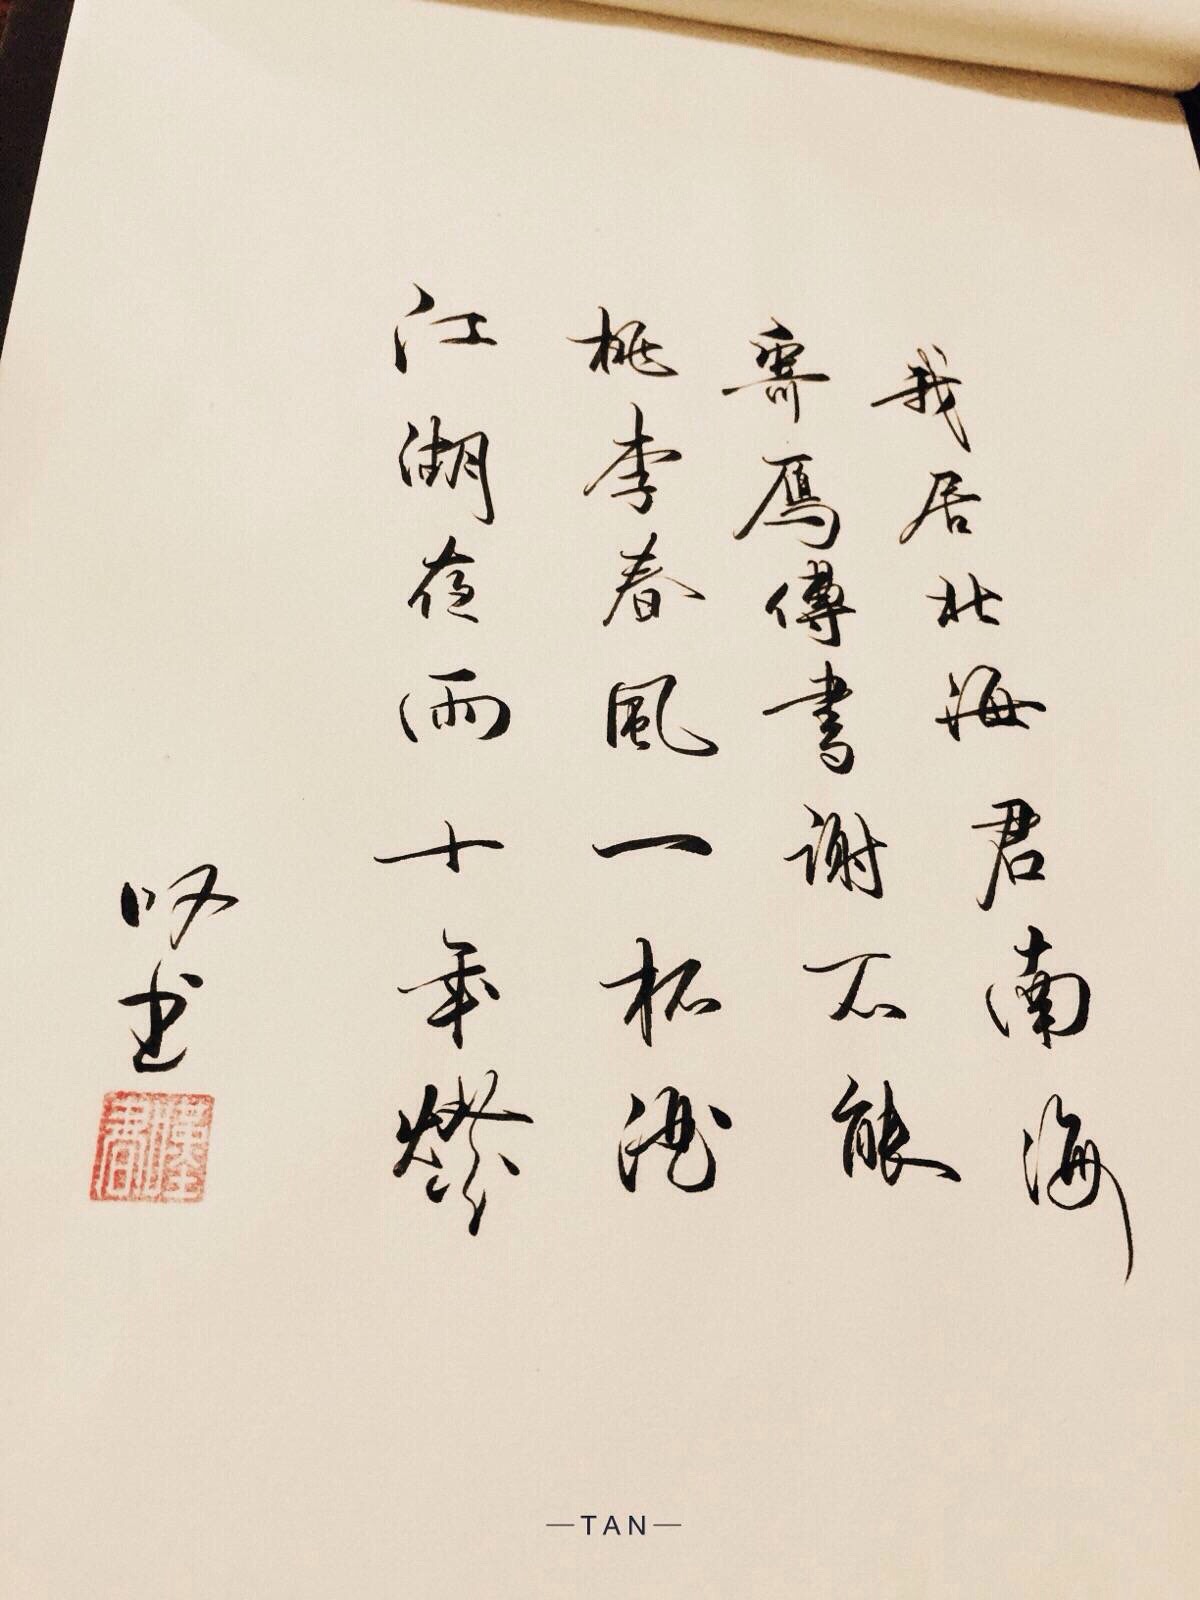 我居北海君南海
寄雁傳書謝不能
桃李春風一杯酒
江湖夜雨十年燈
書
—TAN—